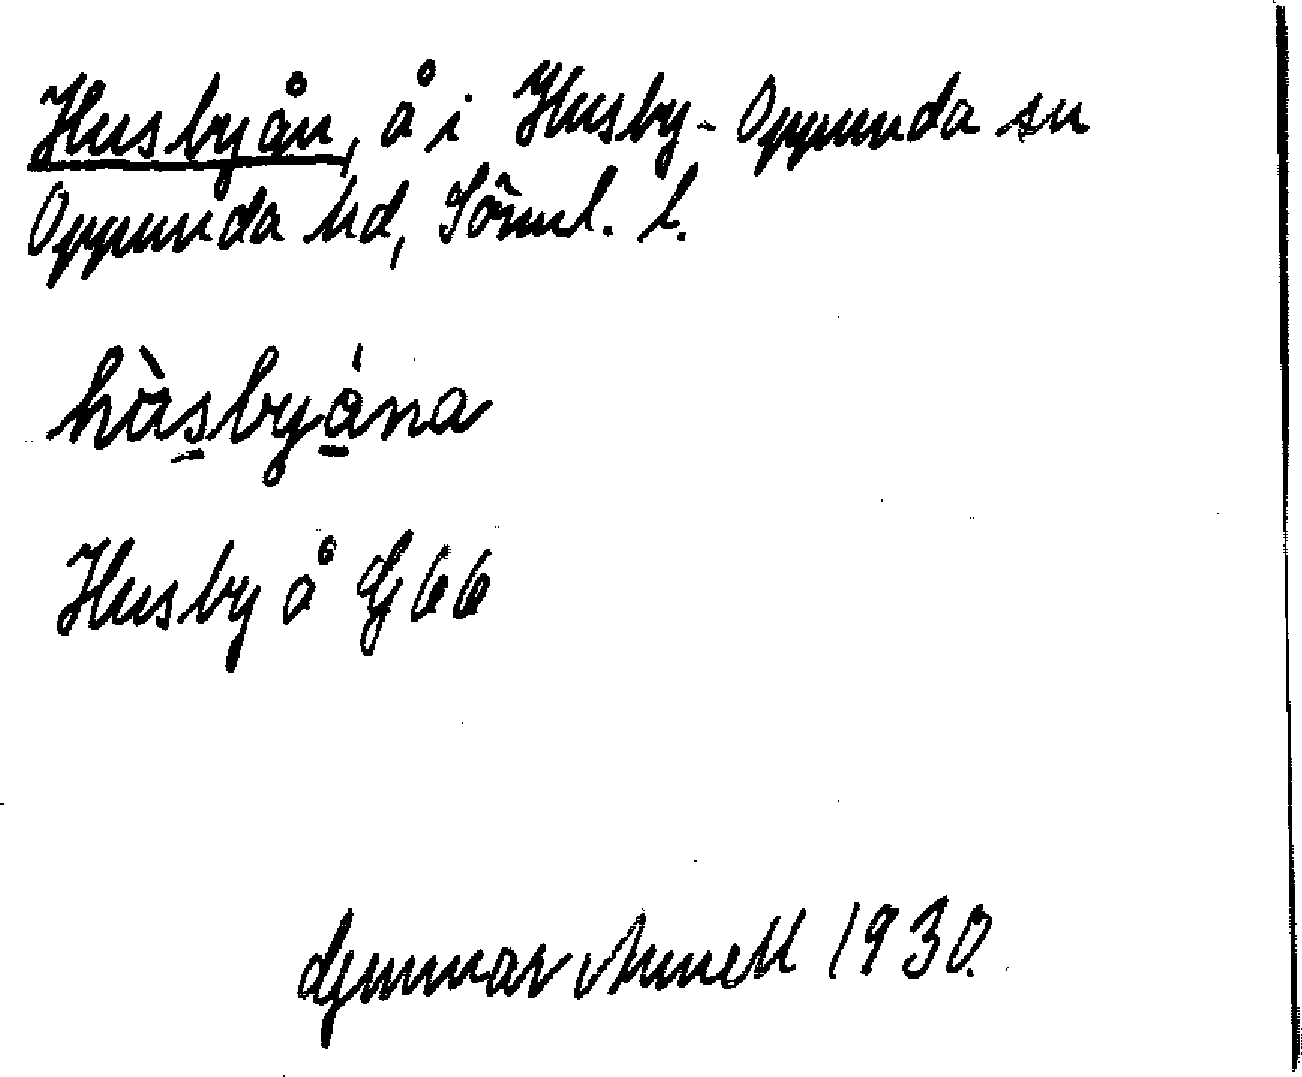 Husbyån, å i Husby-Oppunda sn
Oppunda hd, Sörml. l.
hùsbyána
Husby å G 66
Gunnar Arnell 1930.